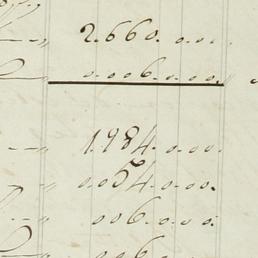 2.660.o.oo.
o.oo6.o.oo.
1.984.o.oo.
o.o54.o.oo.
oo6.o.oo.
oo6.o.oo